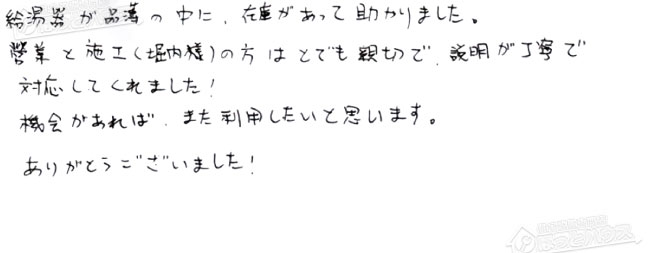 給湯器が品薄の中に、在庫があって助かりました。
営業と施工(堀内様)の方はとても親切で、説明が丁寧で
対応してくれました!
機会があれば、また利用したいと思います。
ありがとうございました!